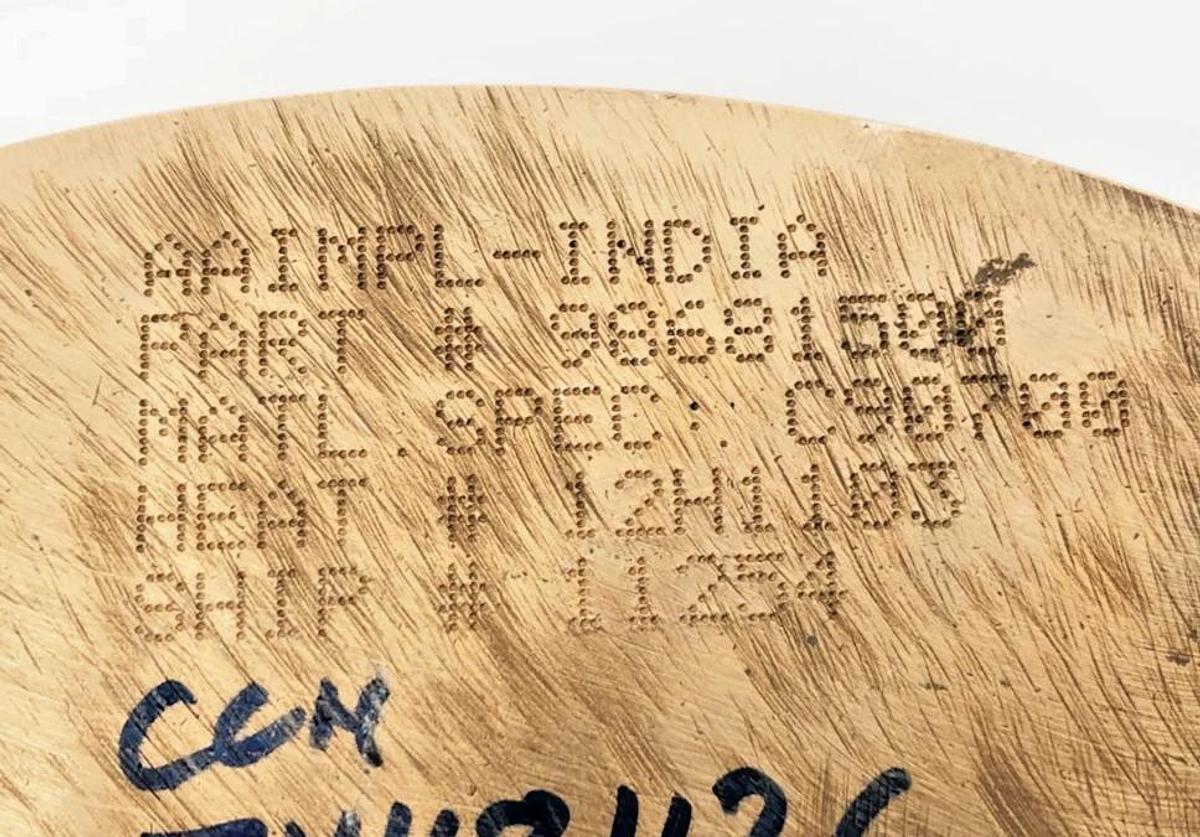 AAIMPL-INDIA
PART #
MATL.SPEC: C90700
HEAT # 12H1103
SHIP # 11254